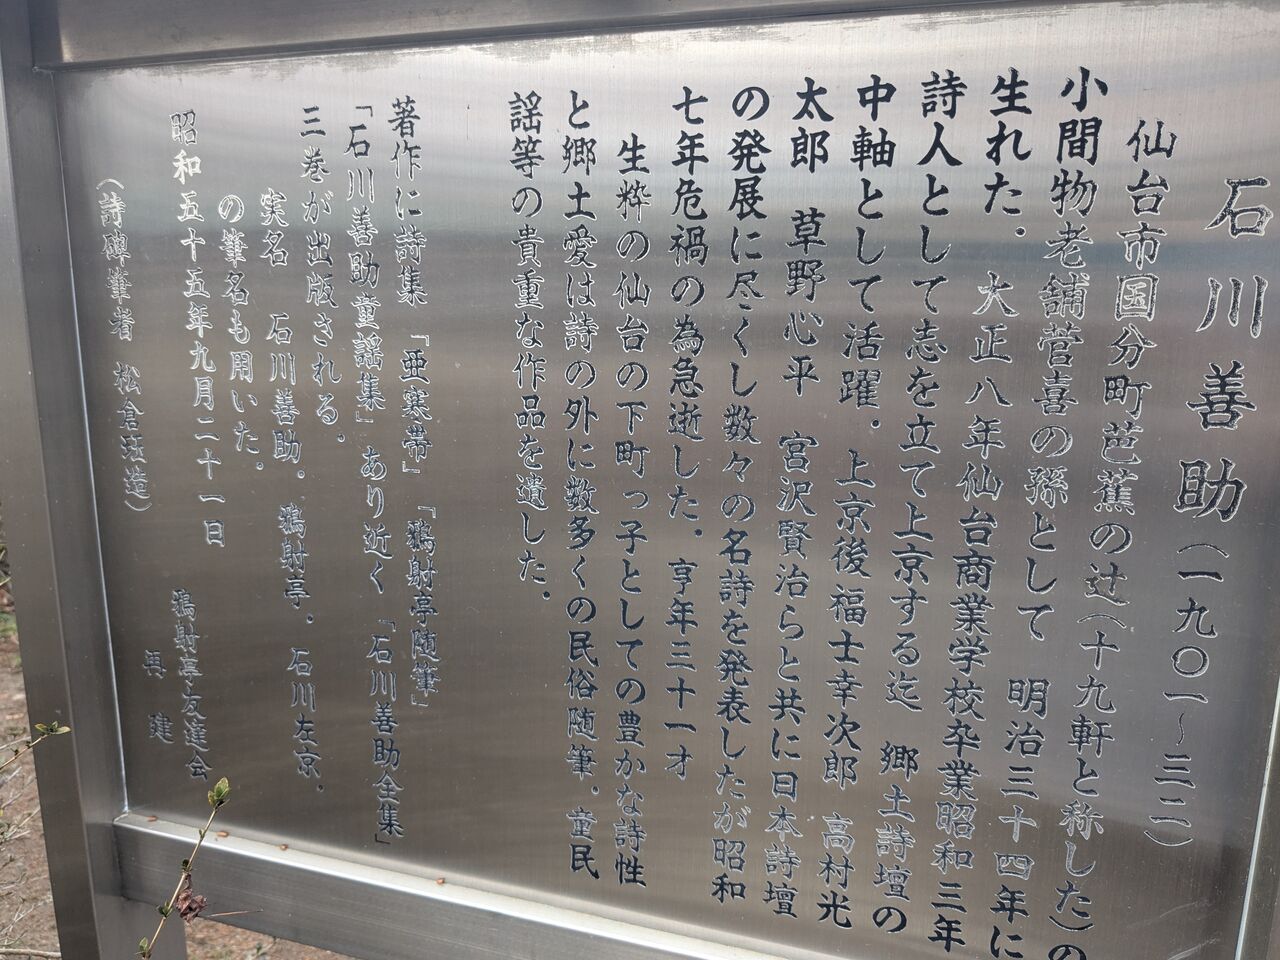 石川善助(一九〇一~三二)
仙台市国分町芭蕉の辻(十九軒と称した)の
小間物老舗菅喜の孫として 明治三十四年に
生れた. 大正八年仙台商業学校卒業昭和三年
詩人として志を立て上京する迄 郷土詩壇の
中軸として活躍. 上京後福士幸次郎 高村光
太郎 草野心平 宮沢賢治らと共に日本詩壇
の発展に尽くし数々の名詩を発表したが昭和
七年危禍の為急逝した. 享年三十一才
生粋の仙台の下町っ子としての豊かな詩性
と郷土愛は詩の外に数多くの民俗随筆. 童民
謡等の貴重な作品を遺した.
著作に詩集 「亜寒帯」「鴉射亭随筆」
「石川善助童謡集」あり近く「石川善助全集」
三巻が出版される.
実名 石川善助. 鴉射亭. 石川左京.
の筆名も用いた.
昭和五十五年九月二十一日 鴉射亭友達会
再建
(詩碑筆者 松倉 造)